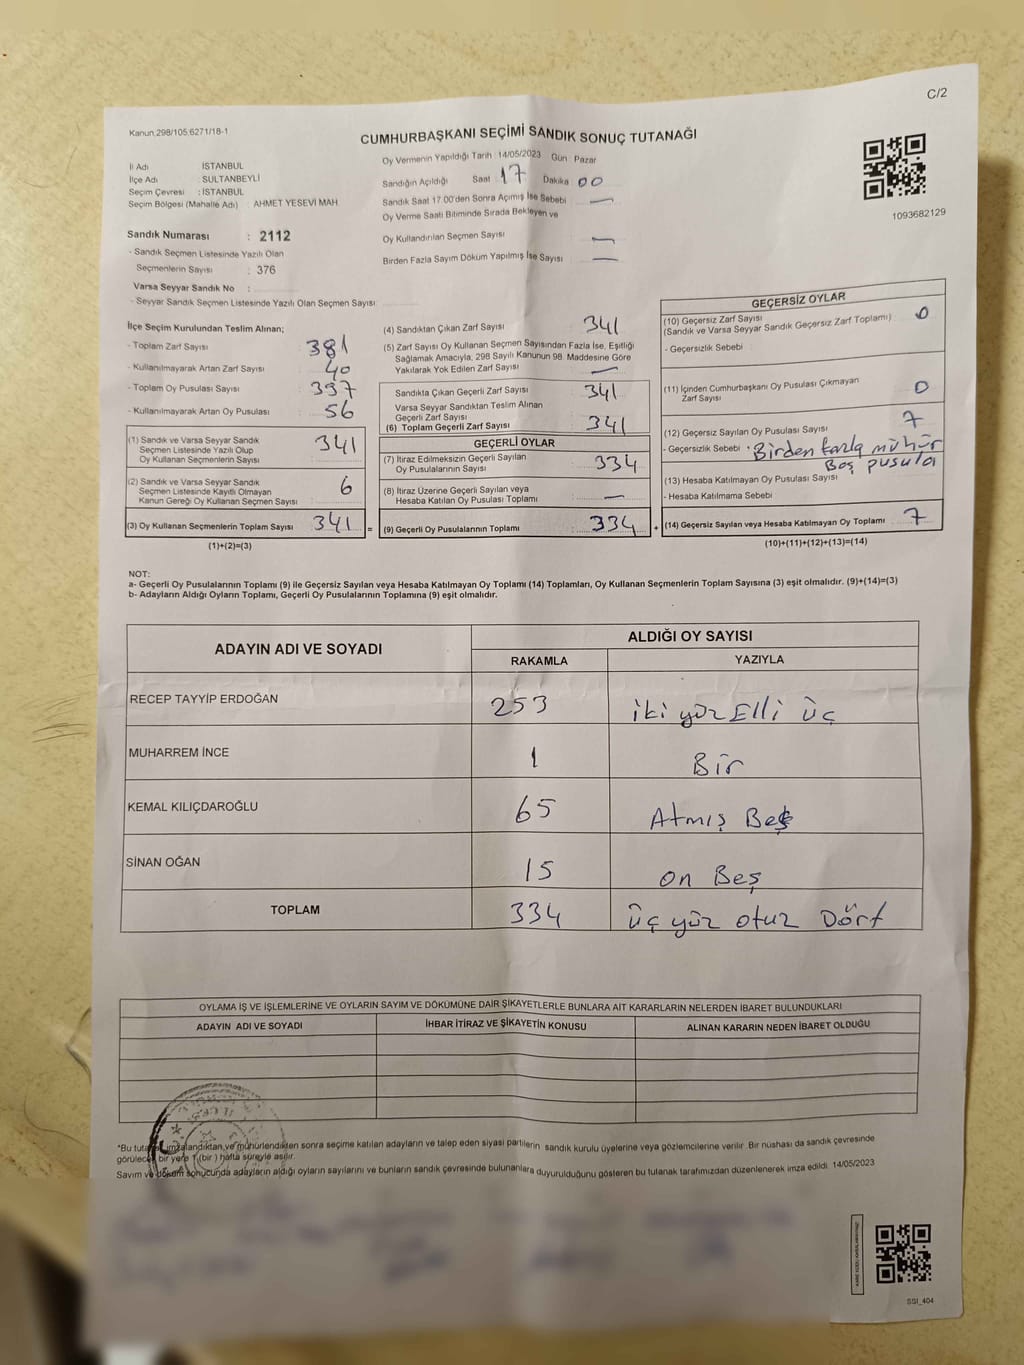 C/2
Kanun,298/105,6271/18-1
CUMHURBAŞKANI SEÇİMİ SANDIK SONUÇ TUTANAĞI
İl Adı İSTANBUL
İlçe Adı SULTANBEYLİ
Seçim Çevresi : İSTANBUL
Seçim Bölgesi (Mahalle Adı) . AHMET YESEVİ MAH
Sandık Numarası : 2112
- Sandık Seçmen Listesinde Yazılı Olan
Seçmenlerin Sayısı : 376
Varsa Seyyar Sandık No :
- Seyyar Sandık Seçmen Listesinde Yazılı Olan Seçmen Sayısı:
Oy Vermenin Yapıldığı Tarih : 14/05/2023 Gün : Pazar
Sandığın Açıldığı Saat 17 Dakika 00
Sandık Saat 17.00'den Sonra Açımış İse Sebebi —
Oy Verme Saati Bitiminde Sırada Bekleyen ve
Oy Kullandırılan Seçmen Sayısı —
Birden Fazla Sayım Döküm Yapılmış İse Sayısı —
1093682129
İlçe Seçim Kurulundan Teslim Alınan;
- Toplam Zarf Sayısı : 381
- Kullanılmayarak Artan Zarf Sayısı : 40
- Toplam Oy Pusulası Sayısı : 397
- Kullanılmayarak Artan Oy Pusulası : 56
(1) Sandık ve Varsa Seyyar Sandık
Seçmen Listesinde Yazılı Olup
Oy Kullanan Seçmenlerin Sayısı 341
(2) Sandık ve Varsa Seyyar Sandık
Seçmen Listesinde Kayıtlı Olmayan
Kanun Gereği Oy Kullanan Seçmen Sayısı 6
(3) Oy Kullanan Seçmenlerin Toplam Sayısı 341 =
(1)+(2)=(3)
(4) Sandıktan Çıkan Zarf Sayısı 341
(5) Zarf Sayısı Oy Kullanan Seçmen Sayısından Fazla İse, Eşitliği
Sağlamak Amacıyla, 298 Sayılı Kanunun 98. Maddesine Göre
Yakılarak Yok Edilen Zarf Sayısı —
Sandıkta Çıkan Geçerli Zarf Sayısı 341
Varsa Seyyar Sandıktan Teslim Alınan
Geçerli Zarf Sayısı
(6) Toplam Geçerli Zarf Sayısı 341
GEÇERLİ OYLAR
(7) İtiraz Edilmeksizin Geçerli Sayılan
Oy Pusulalarının Sayısı 334
(8) İtiraz Üzerine Geçerli Sayılan veya
Hesaba Katılan Oy Pusulası Toplamı —
(9) Geçerli Oy Pusulalarının Toplamı 334 +
GEÇERSİZ OYLAR
(10) Geçersiz Zarf Sayısı 0
(Sandık ve Varsa Seyyar Sandık Geçersiz Zarf Toplamı)
- Geçersizlik Sebebi :
(11) İçinden Cumhurbaşkanı Oy Pusulası Çıkmayan
Zarf Sayısı 0
(12) Geçersiz Sayılan Oy Pusulası Sayısı 7
- Geçersizlik Sebebi : Birden fazla mühür
Boş pusula
(13) Hesaba Katılmayan Oy Pusulası Sayısı
- Hesaba Katılmama Sebebi
(14) Geçersiz Sayılan veya Hesaba Katılmayan Oy Toplamı 7
(10)+(11)+(12)+(13)=(14)
NOT:
a- Geçerli Oy Pusulalarının Toplamı (9) ile Geçersiz Sayılan veya Hesaba Katılmayan Oy Toplamı (14) Toplamları, Oy Kullanan Seçmenlerin Toplam Sayısına (3) eşit olmalıdır. (9)+(14)=(3)
b- Adayların Aldığı Oyların Toplamı, Geçerli Oy Pusulalarının Toplamına (9) eşit olmalıdır.
ADAYIN ADI VE SOYADI ALDIĞI OY SAYISI
RAKAMLA YAZIYLA
RECEP TAYYİP ERDOĞAN 253 iki yüz Elli üç
MUHARREM İNCE 1 Bir
KEMAL KILIÇDAROĞLU 65 Atmış Beş
SİNAN OĞAN 15 on Beş
TOPLAM 334 üç yüz otuz Dört
OYLAMA İŞ VE İŞLEMLERİNE VE OYLARIN SAYIM VE DÖKÜMÜNE DAİR ŞİKAYETLERLE BUNLARA AİT KARARLARIN NELERDEN İBARET BULUNDUKLARI
ADAYIN ADI VE SOYADI İHBAR İTİRAZ VE ŞİKAYETİN KONUSU ALINAN KARARIN NEDEN İBARET OLDUĞU
*Bu tutanak imzalandıktan ve mühürlendikten sonra seçime katılan adayların ve talep eden siyasi partilerin, sandık kurulu üyelerine veya gözlemcilerine verilir. Bir nüshası da sandık çevresinde
görülecek bir yere 1 (bir ) hafta süreyle asılır.
Sayım ve döküm sonucunda adayların aldığı oyların sayılarını ve bunların sandık çevresinde bulunanlara duyurulduğunu gösteren bu tutanak tarafımızdan düzenlenerek imza edildi. 14/05/2023
SSI_404